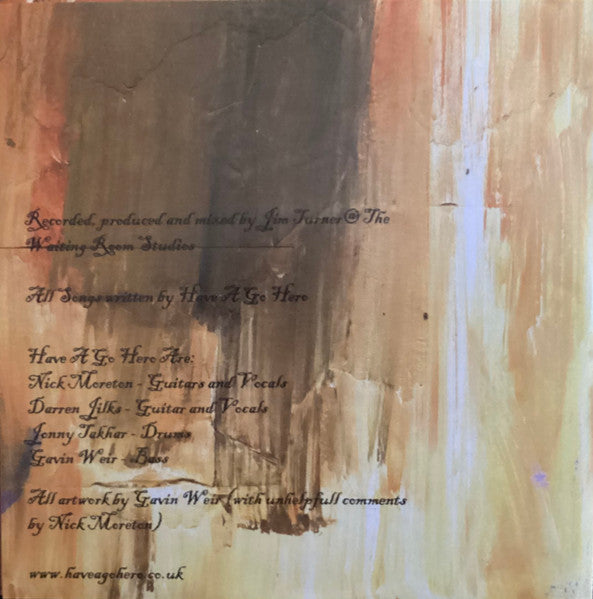 Recorded, produced and mixed by Jim Turner@ The
Waiting Room Studios
All Songs written by Have A Go Hero
Have A Go Hero Are:
Nick Moreton - Guitars and Vocals
Darren Jilks - Guitar and Vocals
Jonny Takhar - Drums
Gavin Weir - Bass
All artwork by Gavin Weir (with unhelpfull comments
by Nick Moreton)
www.haveagohero.co.uk